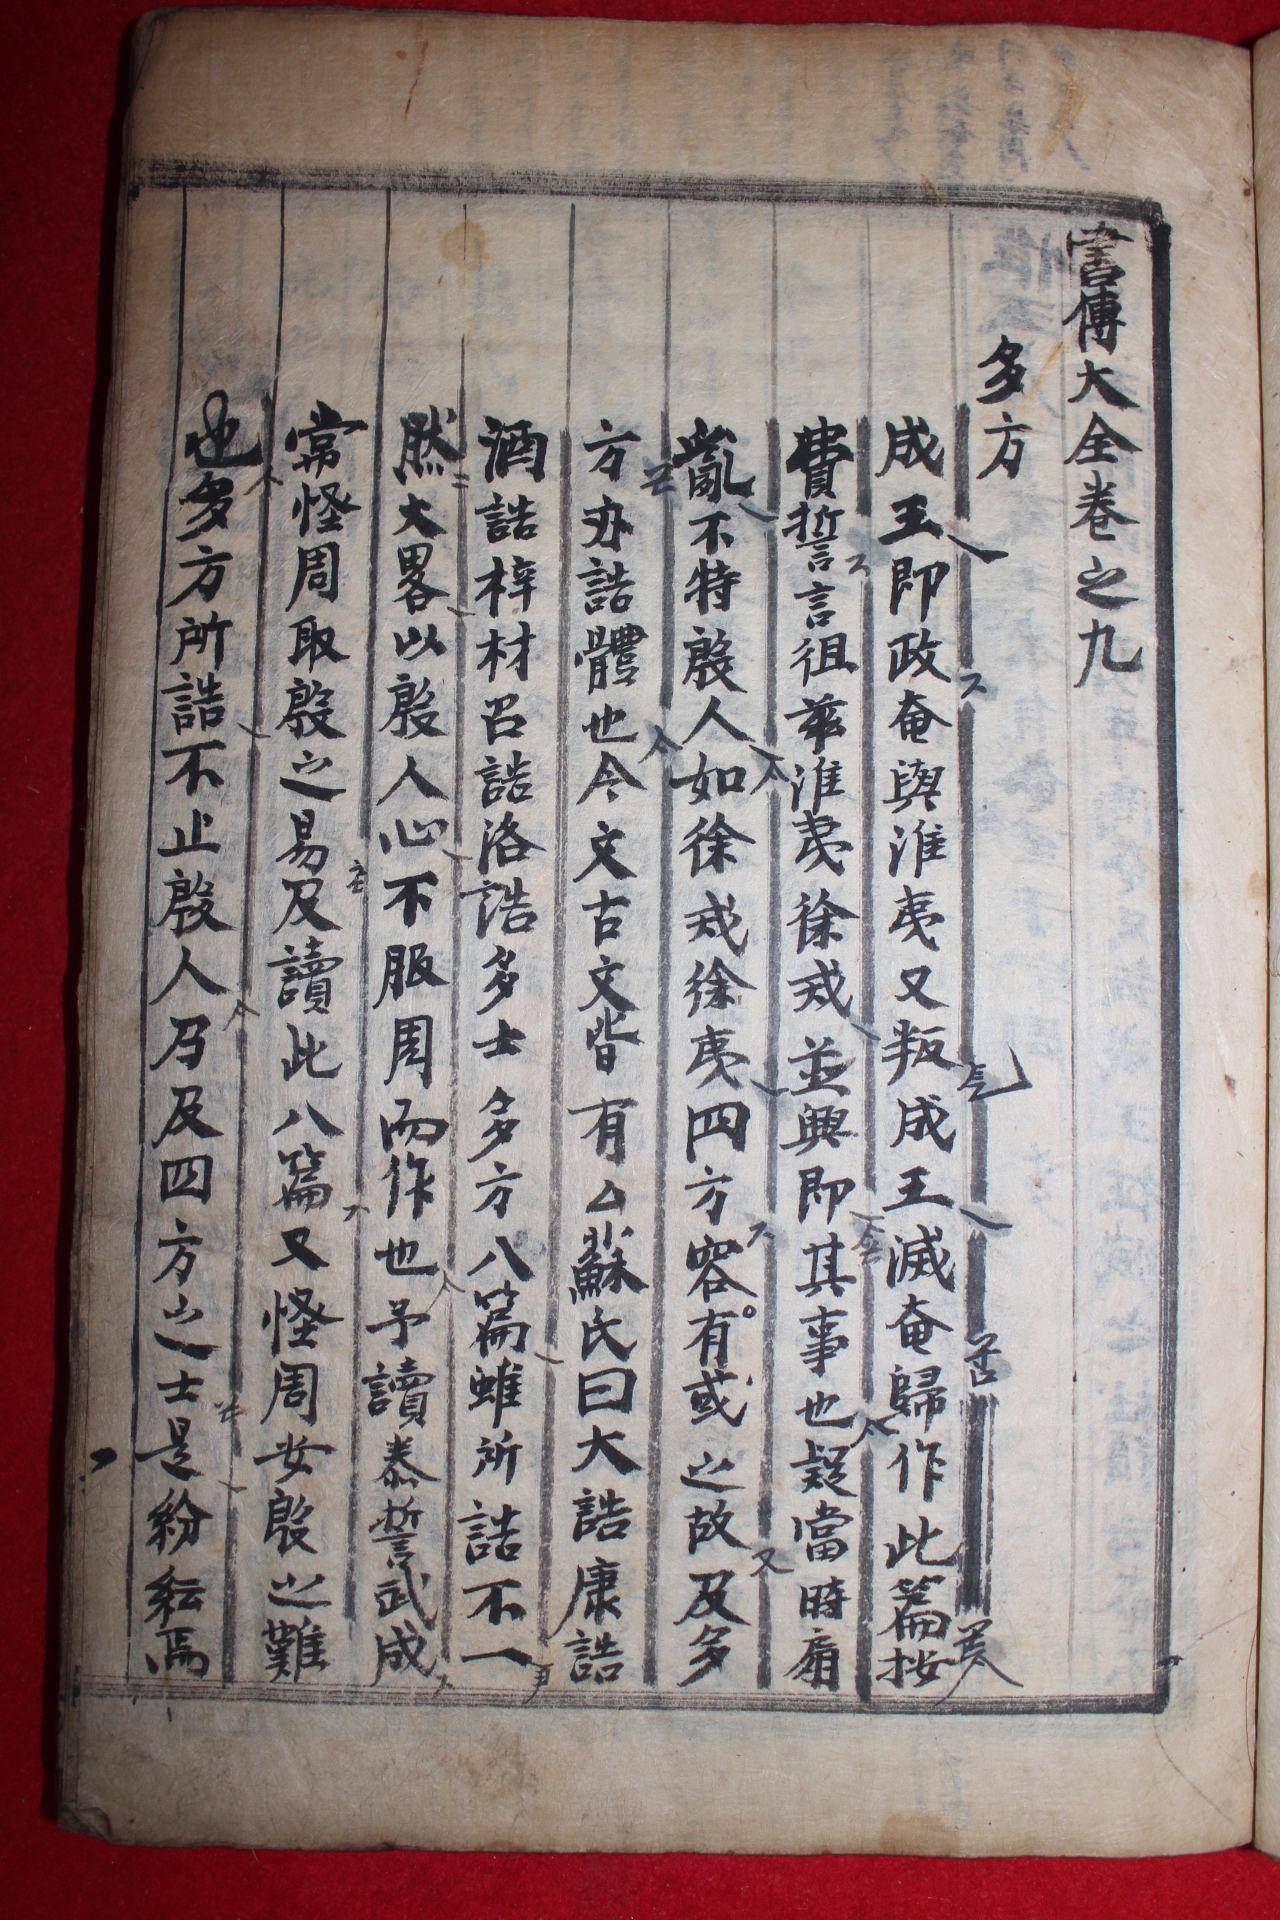 書傳大全卷之九
多方
成王即政奄與淮夷又叛成王滅奄歸作此篇按
費誓言徂玆淮夷徐戎並興即其事也疑當時扇
亂不特殷人如徐戎徐夷四方容有或之故及多
方亦誥體也今文古文皆有△蘇氏曰大誥康誥
酒誥梓材召誥洛誥多士多方八篇雖所誥不一
然大畧以殷人心不服周而作也予讀泰誓武成
常怪周取殷之易及讀此八篇又怪周安殷之難
也多方所誥不止殷人乃及四方之士是紛紜焉